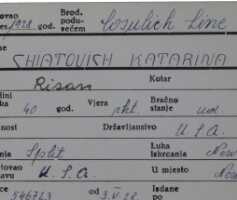 ovao 1928. god. Brod. podu- zećem Cosulich Line
me CHIATOVICH KATARINA
Risan Kotar
dini ka 40 god. Vjera pkt. Bračno stanje ud.
nost Državljanstvo U. S. A.
Split Luka Iskrcanja New
tovao avu U. S. A. U mjesto New
ce 546723 od 3. V. 28. Izdane po